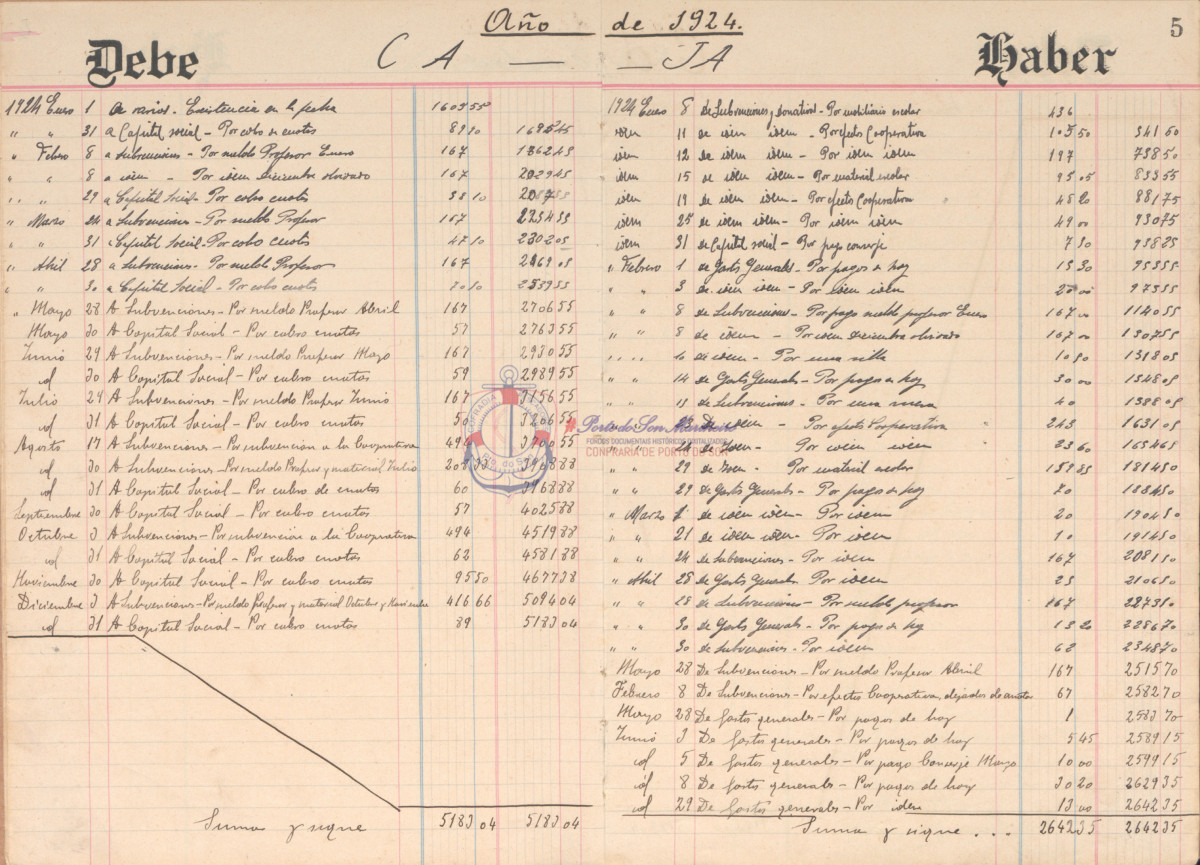 Año de 1924.
5
Debe
CA — — JA
Haber
1924 Enero 1 a varios. Existencia en la fecha 1605 50
" " 31 a Capital social - Por cobro de cuotas 89 10 1695 45
" Febrero 8 a subvenciones - Por sueldo Profesor Enero 167 1862 45
" " 8 a idem - Por idem Diciembre olvidado 167 2029 45
" " 29 a Capital Social - Por cobro cuotas 58 10
" Marzo 24 a Subvenciones - Por sueldo Profesor 167
" " 31 a Capital Social - Por cobro cuotas 47 10 2302
" Abril 28 a Subvenciones - Por sueldo Profesor 167
" " 30 a Capital Social - Por cobro cuotas
" Mayo 28 A Subvenciones - Por sueldo Profesor Abril 167 2706 55
Mayo 30 A Capital Social - Por cobro cuotas 57 2763 55
Junio 29 A Subvenciones - Por sueldo Profesor Mayo 167 2930 55
id 30 A Capital Social - Por cobro cuotas 59 2989 55
Julio 24 A Subvenciones - Por sueldo Profesor Junio 167 3156 55
id 31 A Capital Social - Por cobro cuotas 50 3206 55
Agosto 17 A Subvenciones - Por subvencion a la Cooperativa 494 3700 55
id 30 A Subvenciones - Por sueldo Profesor y material Julio 33 88
id 31 A Capital Social - Por cobro de cuotas 60 3968 88
Septiembre 30 A Capital Social - Por cobro cuotas 57 4025 88
Octubre 3 A Subvenciones - Por subvencion a la Cooperativa 494 4519 88
id 31 A Capital Social - Por cobro cuotas 62 4581 88
Noviembre 30 A Capital Social - Por cobro cuotas 95 50 4677 38
Diciembre 3 A Subvenciones - Por sueldo Profesor y material Octubre y Noviembre 416 66 5094 04
id 31 A Capital Social - Por cobro cuotas 89 5183 04
Suma y sigue 5183 04 5183 04
1924 Enero 8 de Subvenciones y donativos - Por mobiliario escolar 436
idem 11 de idem idem - Por efectos Cooperativa 105 50 541 50
idem 12 de idem idem - Por idem idem 197 738 50
idem 15 de idem idem - Por material escolar 95 05 833 55
idem 19 de idem idem - Por efectos Cooperativa 48 20 881 75
idem 25 de idem idem - Por idem idem 49 00 930 75
idem 31 de Capital social - Por pago conserje 7 50 938 25
" Febrero 1 de Gastos Generales - Por pagos de hoy 15 30 953 55
" " 3 de idem idem - Por idem idem 20 00 973 55
" " 8 de Subvenciones - Por pago sueldo profesor Enero 167 00 1140 55
" " 8 de idem - Por idem Diciembre olvidado 167 00 1307 55
" " 10 de idem - Por una silla 10 50 1318 05
" " 14 de Gastos Generales - Por pagos de hoy 30 00 1348 05
" " 15 de Subvenciones - Por una mesa 40 1388 05
de idem - Por efectos Cooperativa 243 1631 05
" " de Idem - Por idem idem 23 60 1654 65
" " 29 de Idem - Por material escolar 159 85 1814 50
" " 29 de Gastos Generales - Por pagos de hoy 70 1884 50
" Marzo 1 de idem idem - Por idem 20 1904 50
" " 21 de idem idem - Por idem 10 1914 50
" " 24 de Subvenciones - Por idem 167 2081 50
" Abril 28 de Gastos Generales - Por idem 25 2106 50
" " 28 de Subvenciones - Por sueldo profesor 167 2273 10
" " 30 de Gastos Generales - Por pagos de hoy 13 20 2286 70
" " 30 de Subvenciones - Por idem 62 2348 70
Mayo 28 De Subvenciones - Por sueldo Profesor Abril 167 2515 70
Febrero 8 De Subvenciones - Por efectos Cooperativa, dejados de anotar 67 2582 70
Mayo 28 De Gastos generales - Por pagos de hoy 1 2583 70
Junio 3 De Gastos generales - Por pagos de hoy 5 45 2589 15
id 5 De Gastos generales - Por pago Conserje Mayo 10 00 2599 15
id 8 De Gastos generales - Por pagos de hoy 30 20 2629 35
id 29 De Gastos generales - Por idem 13 00 2642 35
Suma y sigue ... 2642 35 2642 35
#Porto do Son Mariñeiro
FONDOS DOCUMENTAIS HISTÓRICOS DIXITALIZADOS
CONFRARÍA DE PORTO DO SON